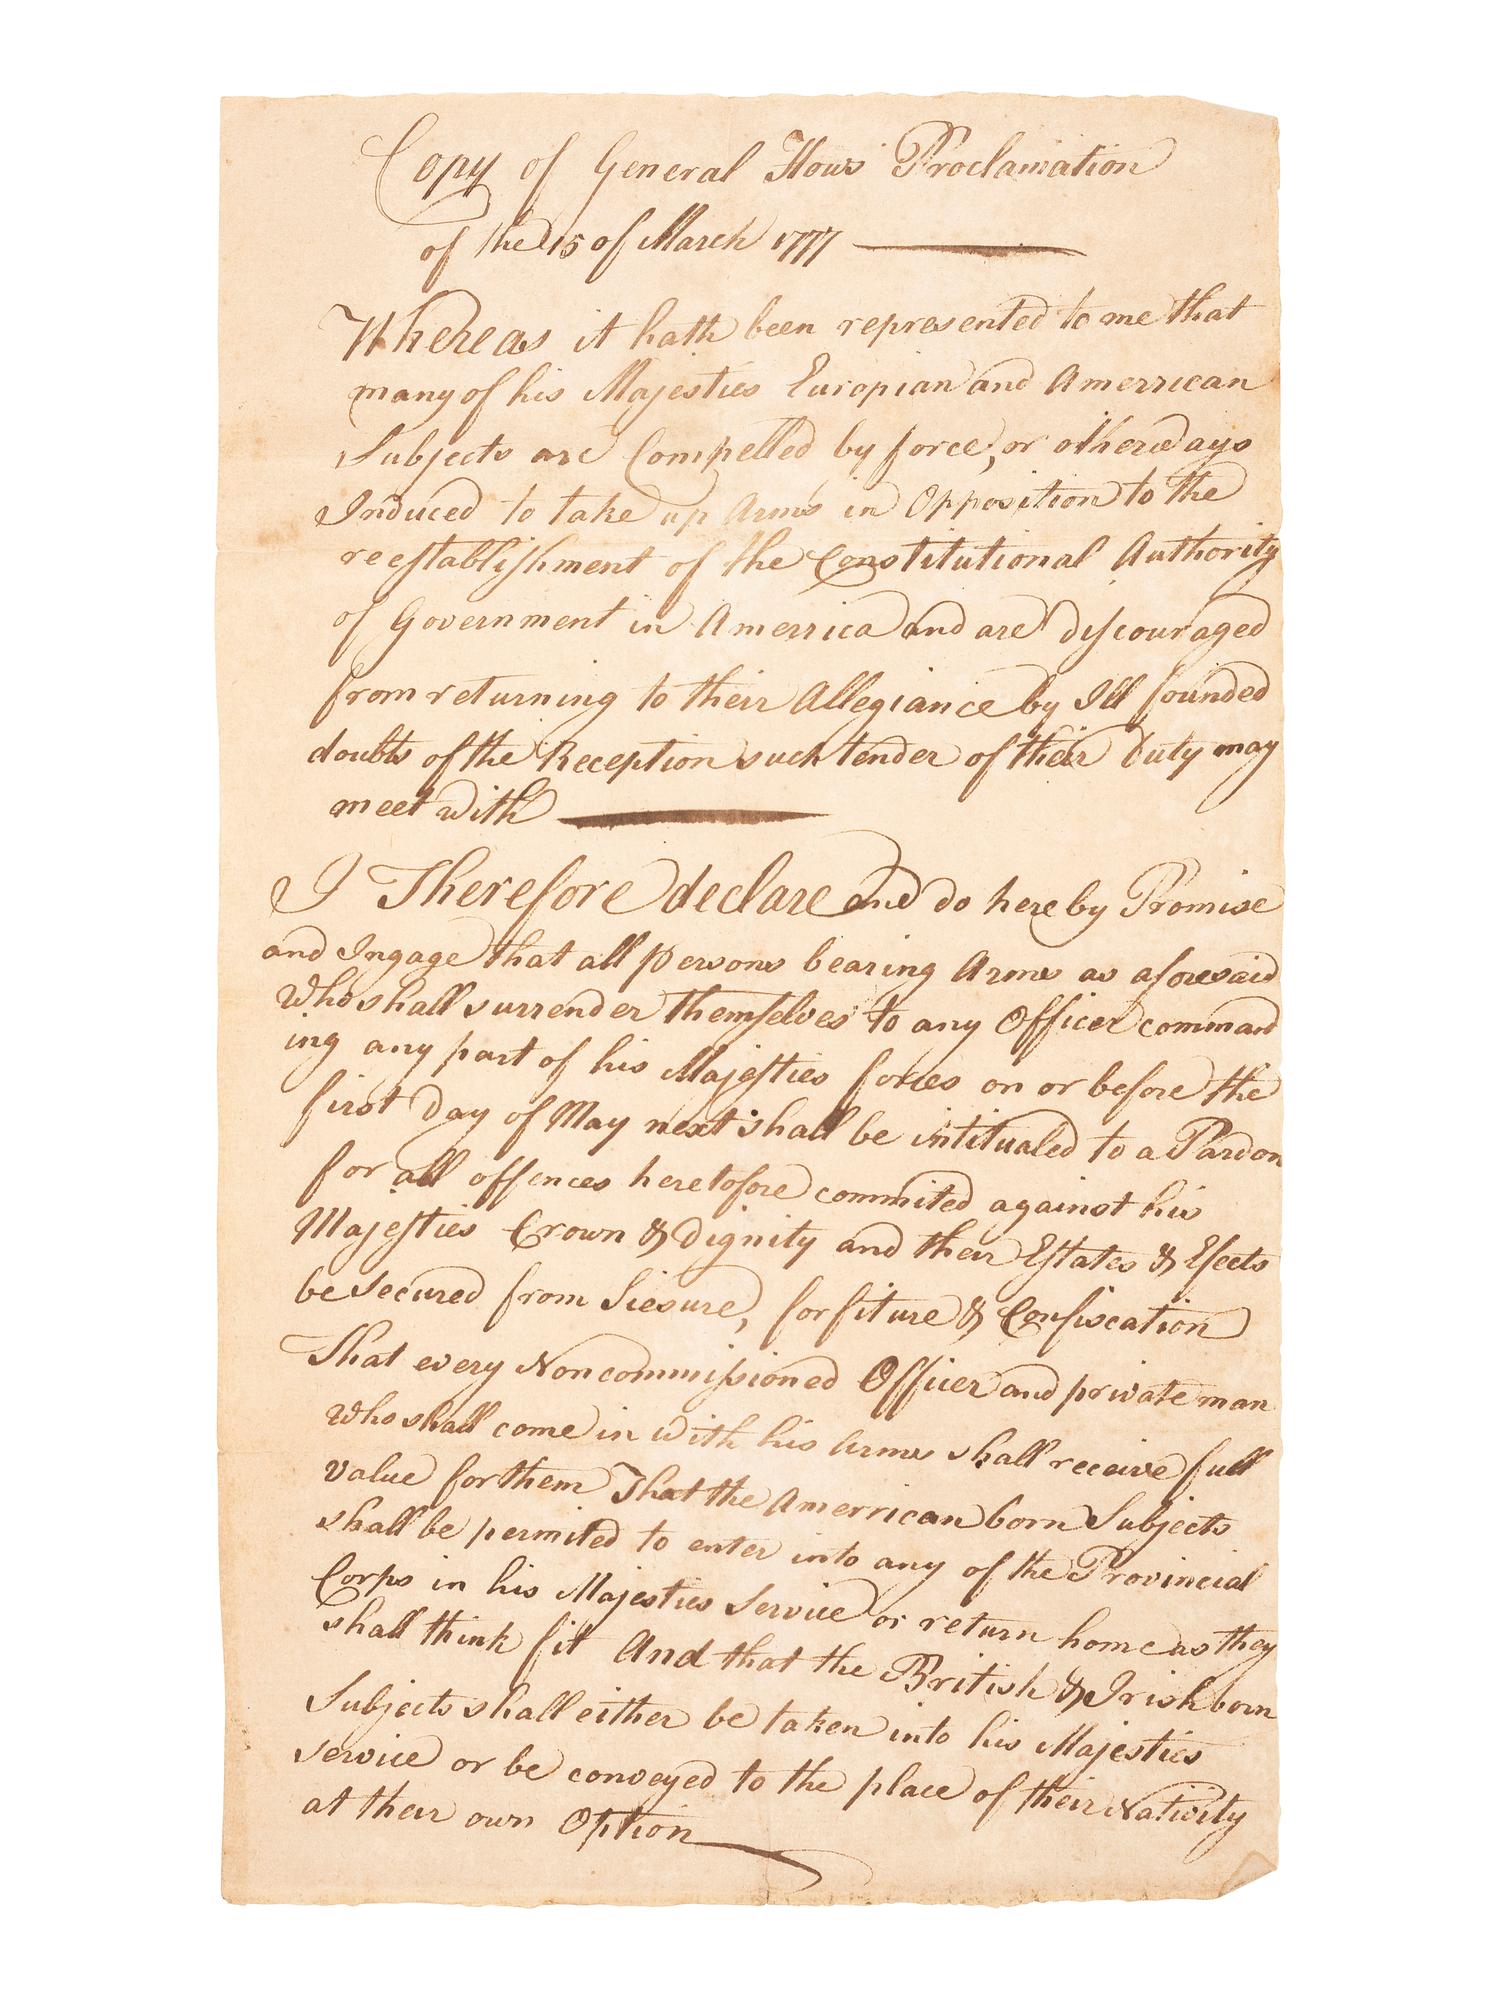 Copy of General Hows Proclamation
of the 15 of March 1777
Whereas it hath been represented to me that
many of his Majesties Europian and Amerrican
Subjects are Compelled by force, or otherways
Induced to take up Arms in Opposition to the
reestablishment of the Constitutional Authority
of Government in Amerrica and are discouraged
from returning to their Allegiance by Ill founded
doubts of the Reception such tender of their Duty may
meet with
I Therefore declare and do hereby Promise
and Ingage that all persons bearing Arms as aforesaid
Who shall surrender themselves to any Officer command
ing any part of his Majesties forces on or before the
first Day of May next shall be intitualed to a Pardon
for all offences heretofore commited against his
Majesties Crown & dignity and their Estates & Efects
be secured from Siesure, forfiture & Confiscation
That every Noncommissioned Officer and private man
Who shall come in with his Arms shall receive full
value for them That the Amerrican born Subjects
shall be permited to enter into any of the Provincial
Corps in his Majesties Service or return home as they
shall think fit And that the British & Irish born
Subjects shall either be taken into his Majesties
service or be conveyed to the place of their Nativity
at their own Option